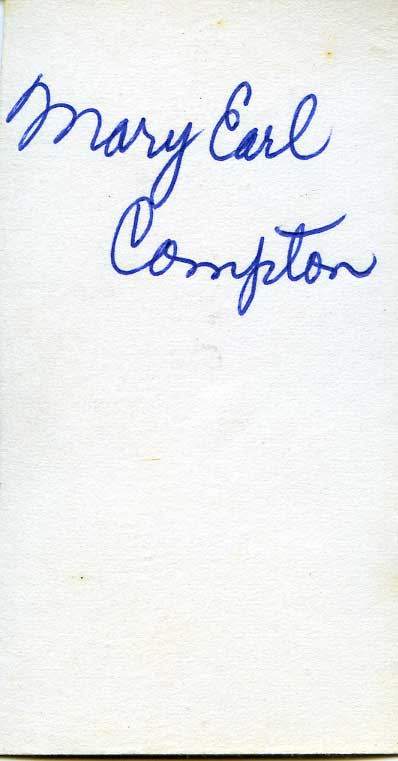 Mary Earl
Compton